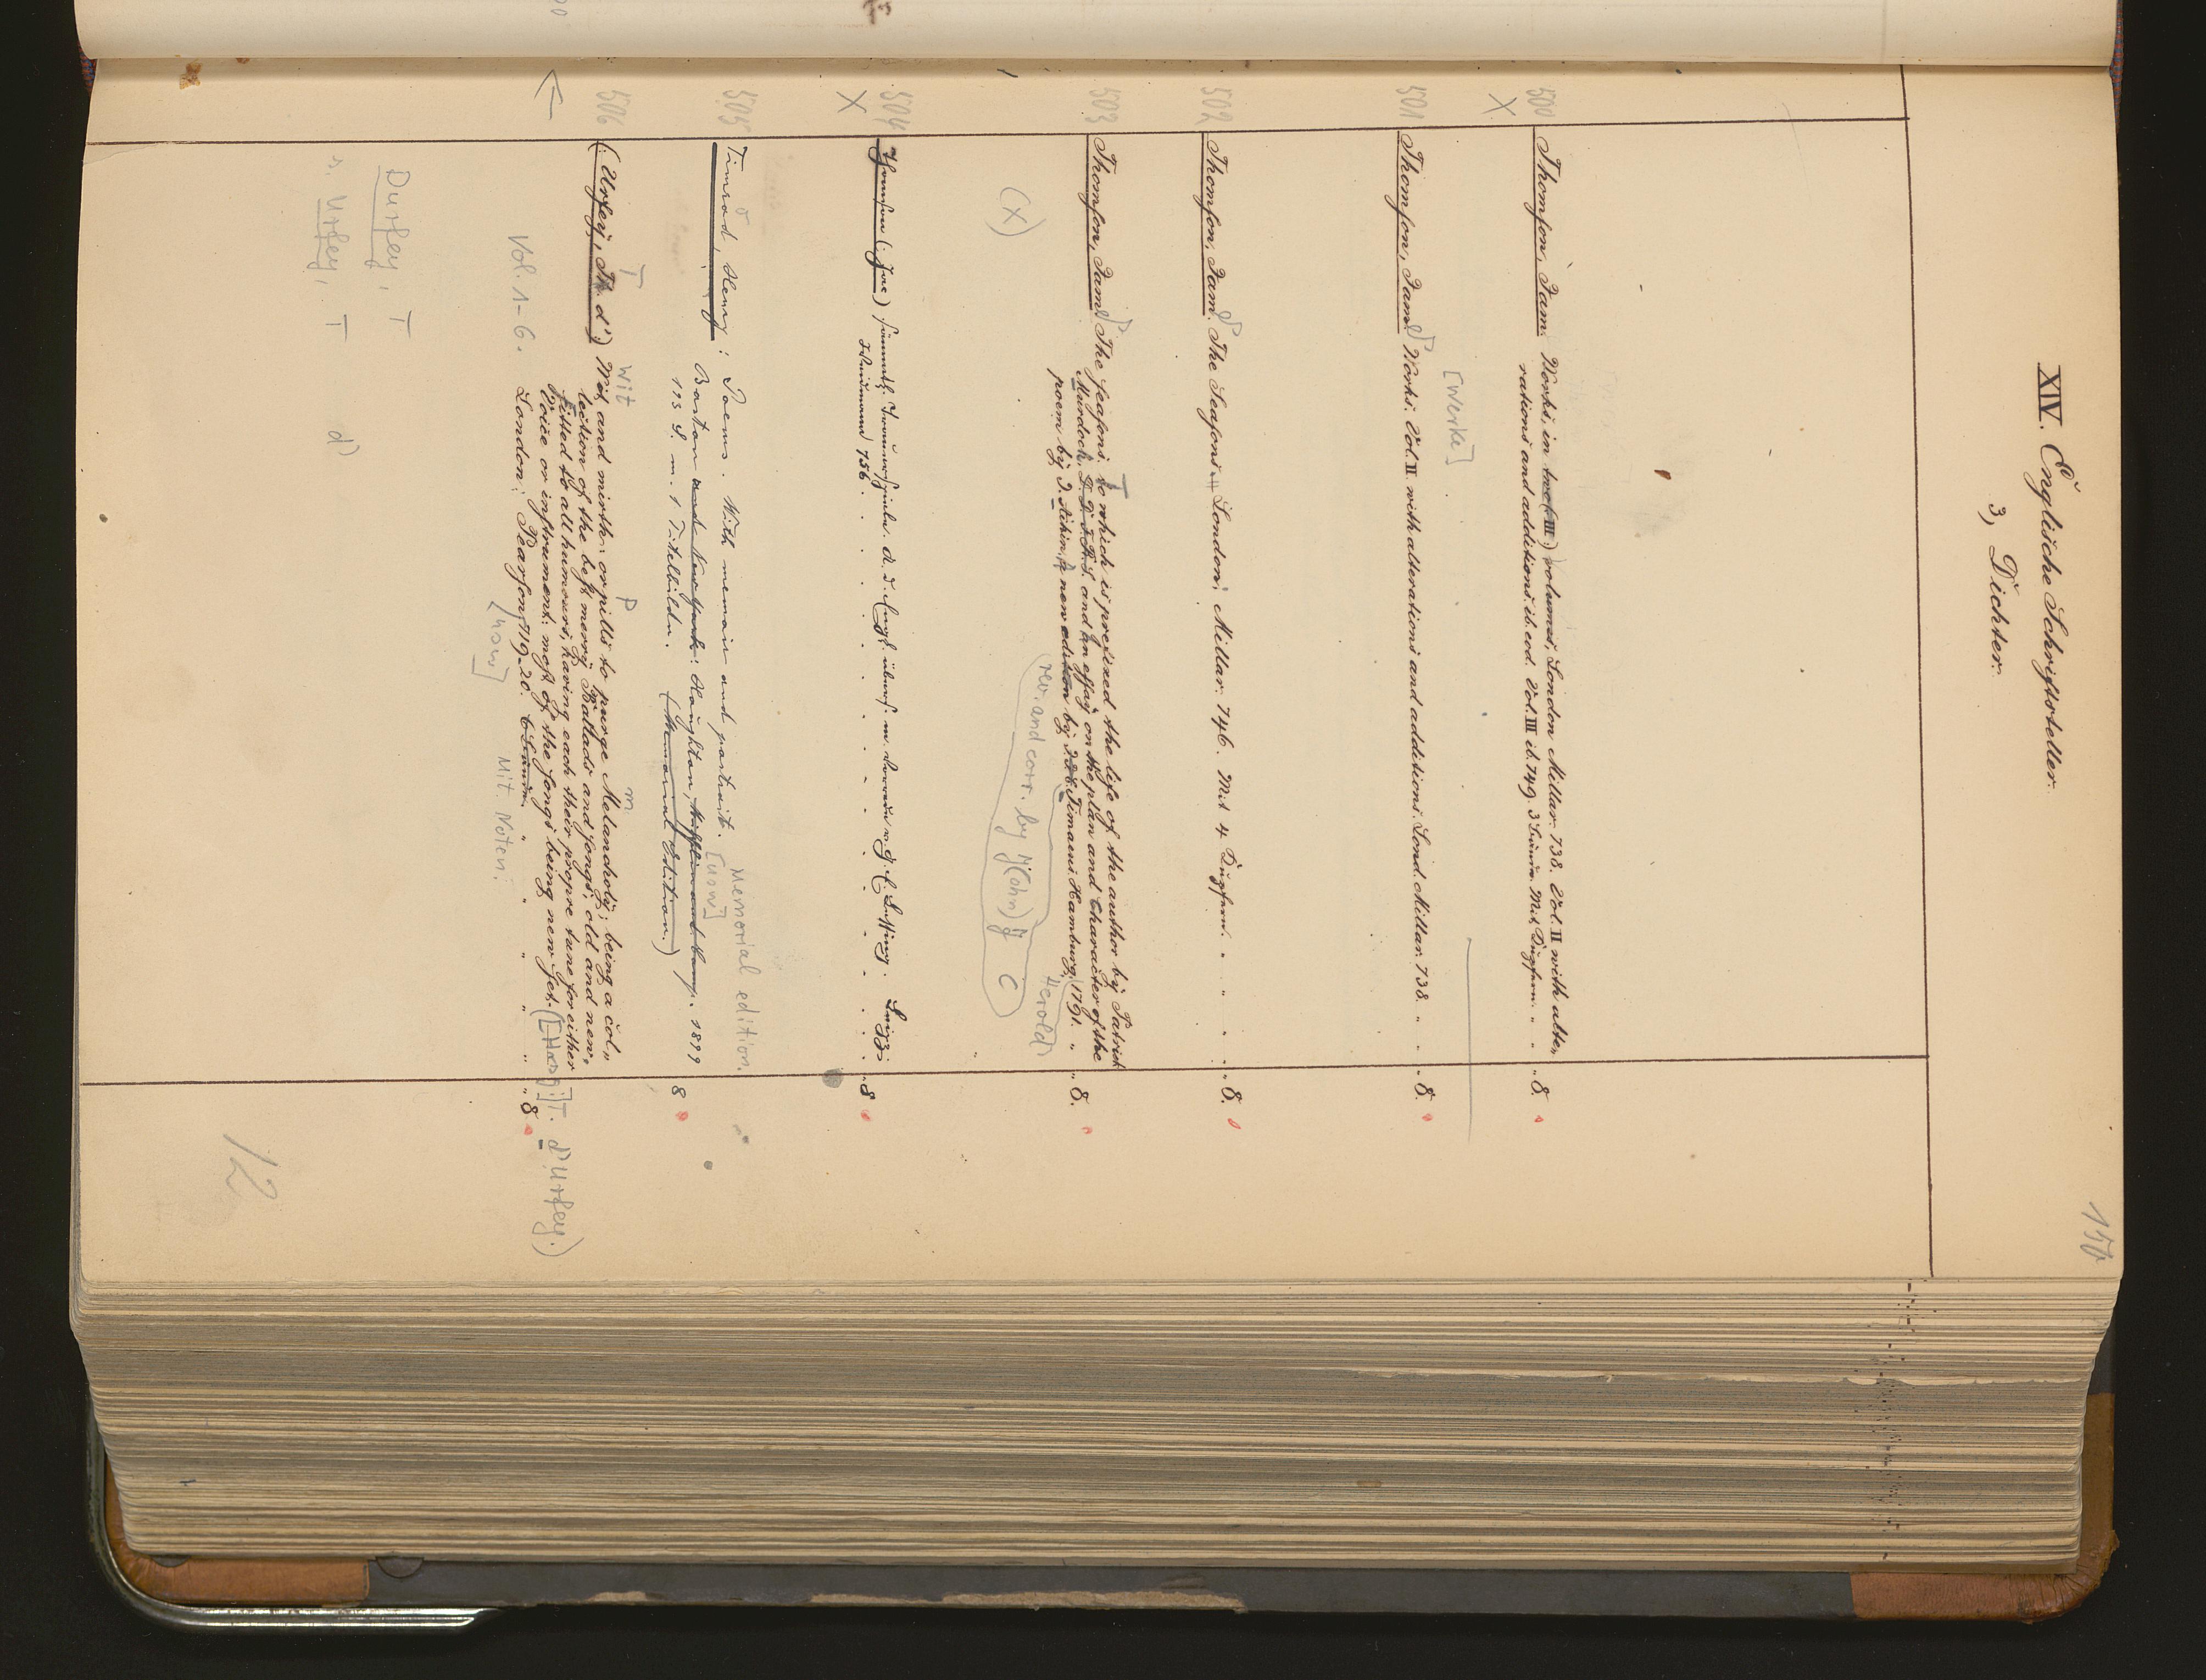 150
XIV. Englische Schriftsteller.
3, Dichter.
500 Thomson, Jam. Works. in two (III) volumes. London Millar. 738. Vol. II with alte,
X rations and additions. ib. eod. Vol. III ib. 749. 3 Bände. Mit Kupfern. " " 8.
[Werke]
501 Thomson, Jam. Works. Vol. II. with alterations and additions. Lond. Millar. 738. " " 8.
502 Thomson, Jam. The Seasons. London, Millar. 746. Mit 4 Kupfern. " " " " 8.
503 Thomson, Jam. The seasons. to which is prefixed the life of the author by Patrick
Murdoch. D. D. F. R. S. and an essay on the plan and character of the
poem by J. Aikin, a new edition by J. Timaeus. Hamburg. 1791. " " 8.
Herold
rev. and corr. by J(ohn) J C
(X)
504 Thomson (Jac) sämmtl. Trauerspiele. A. d. Engl. übers. m. Vorrede v. G. E. Lessing. Leipz.
X Weidmann 756. 8
Memorial edition.
505 Timrod, Henry: Poems. With memoir and portrait. [usw]
Boston and New York: Houghton, Mifflin and Comp. 1899
193 S. m. 1 Titelbilde. (Memorial Edition.) 8
T wit P m
506 (Urfey, Th. d') Wit and mirth: or pills to purge Melancholy; being a col,
lection of the best merry Ballads and songs, old and new,
fitted to all humours, having each their propre tune for either
← Voice or instrument: most of the songs being new set. ([Hrsg.:] T. d'Urfey.)
Vol. 1-6. London: Pearson, 719-20. 6 Bände. " " " " " 8.
[usw] Mit Noten.
Durfey, T
s. Urfey, T d'
12